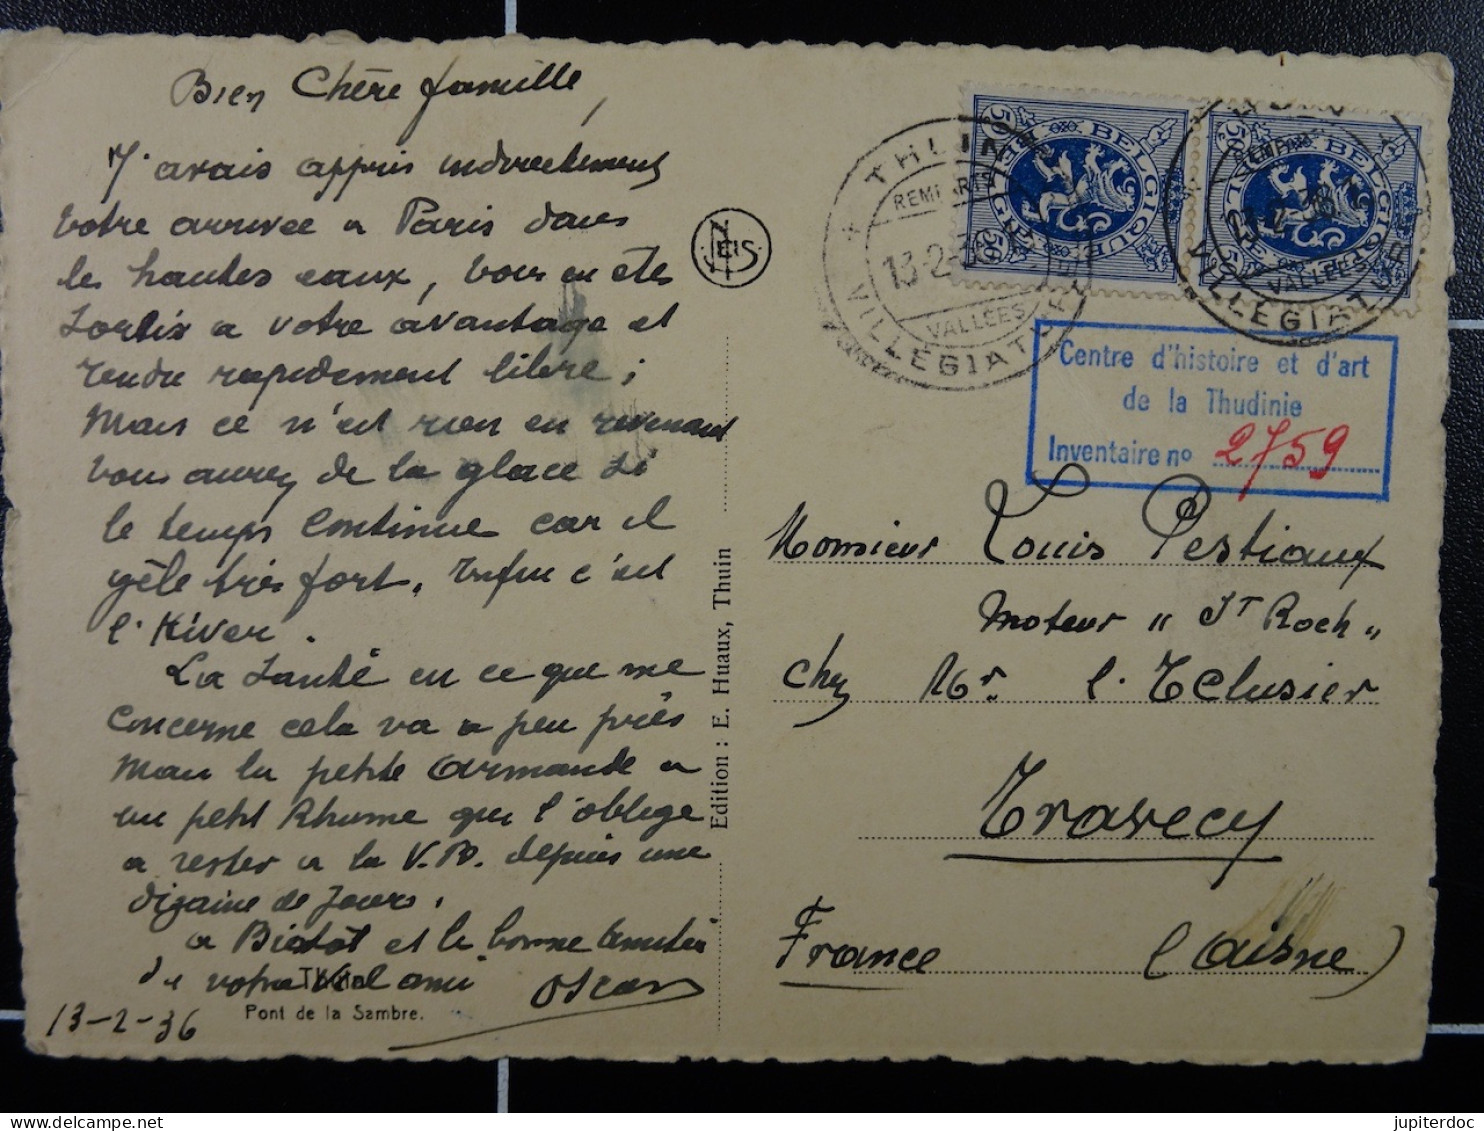 Bien Chère famille,
J'avais appris indirectement
votre arrivée a Paris dans
les hautes eaux, vous en êtes
sortix a votre avantage et
rendu rapidement libre ;
Mais ce n'est rien en revenant
vous aurez de la glace si
le temps continue car il
gèle très fort. Enfin c'est
l'Hiver.
La Santé en ce qui me
concerne cela va a peu près
mais la petite Armande a
un petit Rhume qui l'oblige
a rester a la V.B. depuis une
dizaine de jours.
a Bientôt et la bonne amitié
de votre ami Oscar
13-2-36
THUIN
Pont de la Sambre.
Edition : E. Huaux, Thuin
NELS
THUIN
REMPARTS
13-2-36
VALLÉES
VILLÉGIATURE
BELGIQUE
BELGIË
50
BELGIQUE
50
REMPARTS
VALLÉES
VILLÉGIATURE
Centre d'histoire et d'art
de la Thudinie
Inventaire no 2759
Monsieur Louis Pestiaux
Moteur " St Roch "
Chez Mr l'Eclusier
Travecy
France (Aisne)
jupiterdoc
www.delcampe.net